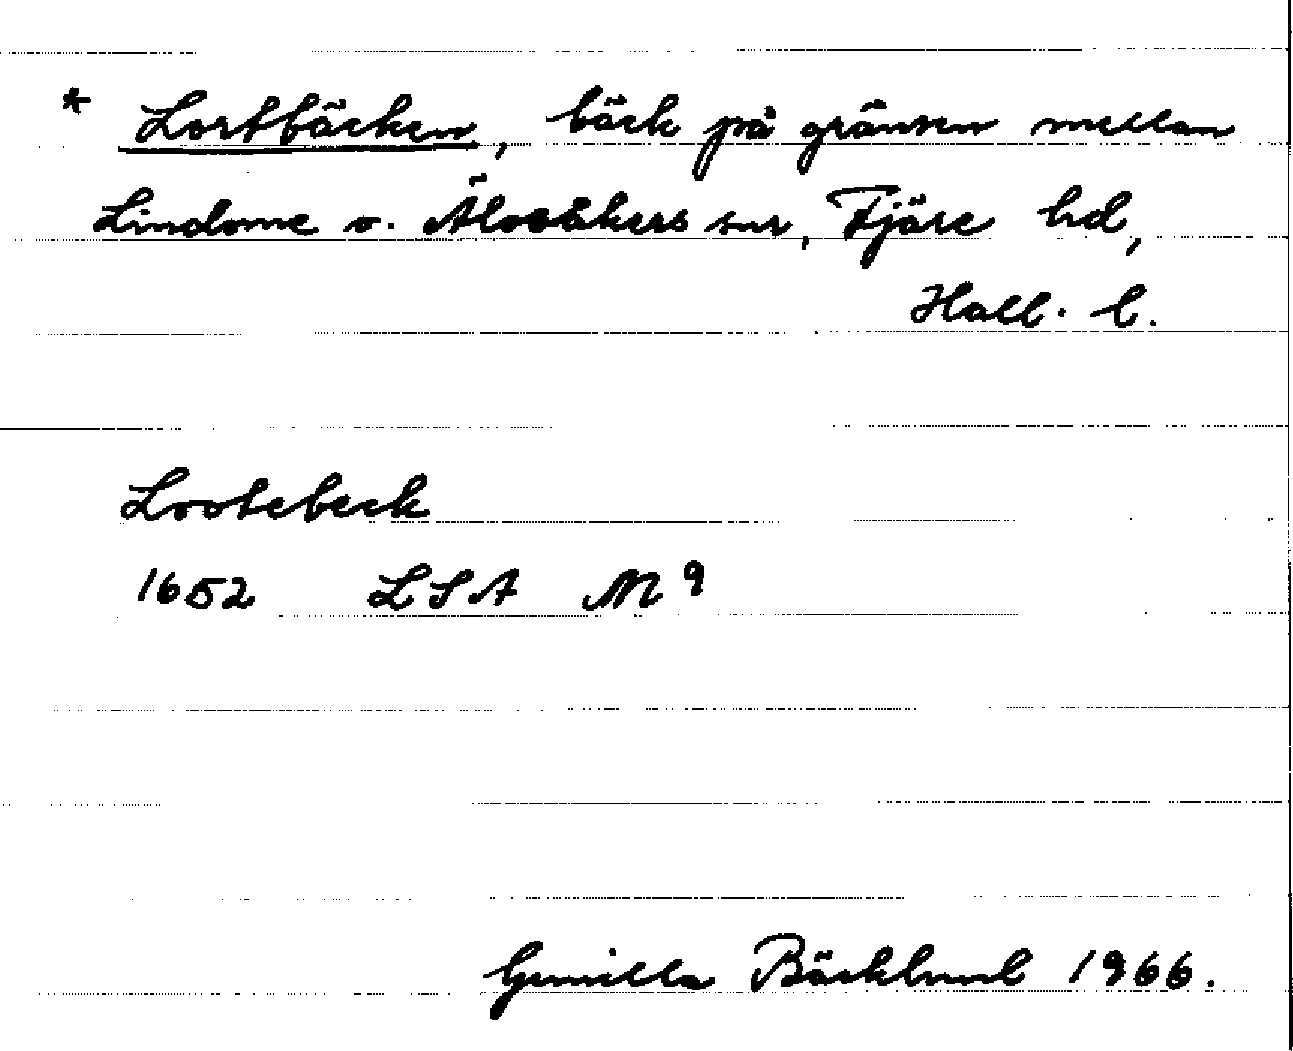 * Lortbäcken, bäck på gränsen mellan
Lindome o. Älvsåkers snr, Fjäre hd,
Hall. l.
Lortebeck
1652 LSA M 9
Gunilla Bäcklund 1966.